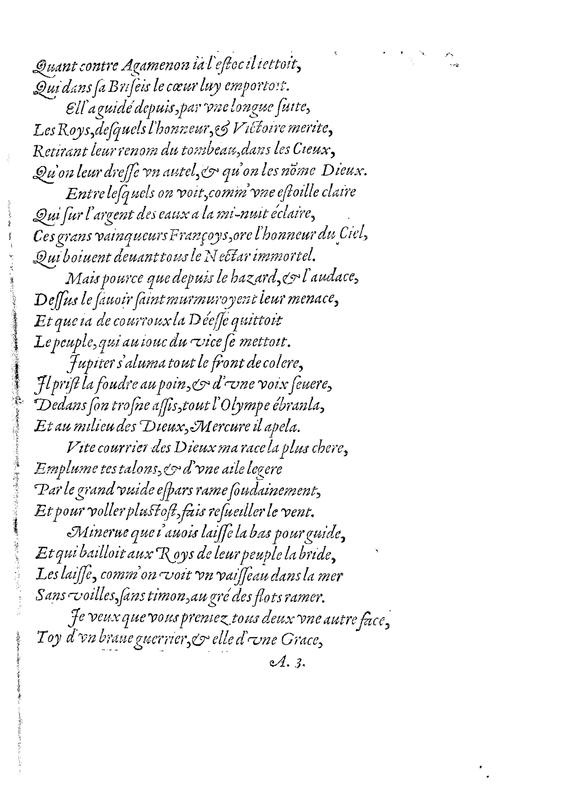 Quant contre Agamenon ia l'estoc il iettoit,
Qui dans sa Briseis le cœur luy emportoit.
Ell' a guidé depuis, par vne longue suite,
Les Roys, desquels l'honneur, & Victoire merite,
Retirant leur renom du tombeau, dans les Cieux,
Qu'on leur dresse vn autel, & qu'on les nõme Dieux.
Entre lesquels on voit, comm' vne estoille claire
Qui sur l'argent des eaux a la mi-nuit éclaire,
Ces grans vainqueurs Françoys, ore l'honneur du Ciel,
Qui boiuent deuant tous le Nectar immortel.
Mais pource que depuis le hazard, & l'audace,
Dessus le sauoir saint murmuroyent leur menace,
Et que ia de courroux la Déesse quittoit
Le peuple, qui au iouc du vice se mettoit.
Jupiter s'aluma tout le front de colere,
Jl prist la foudre au poin, & d'vne voix seuere,
Dedans son trosne assis, tout l'Olympe ébranla,
Et au milieu des Dieux, Mercure il apela.
Vite courrier des Dieux ma race la plus chere,
Emplume tes talons, & d'vne aile legere
Par le grand vuide espars rame soudainement,
Et pour voller plustost, fais resueiller le vent.
Minerue que i'auois laisse la bas pour guide,
Et qui bailloit aux Roys de leur peuple la bride,
Les laisse, comm' on voit vn vaisseau dans la mer
Sans voilles, sans timon, au gré des flots ramer.
Je veux que vous preniez tous deux vne autre face,
Toy d'vn braue guerrier, & elle d'vne Grace,
A. 3.